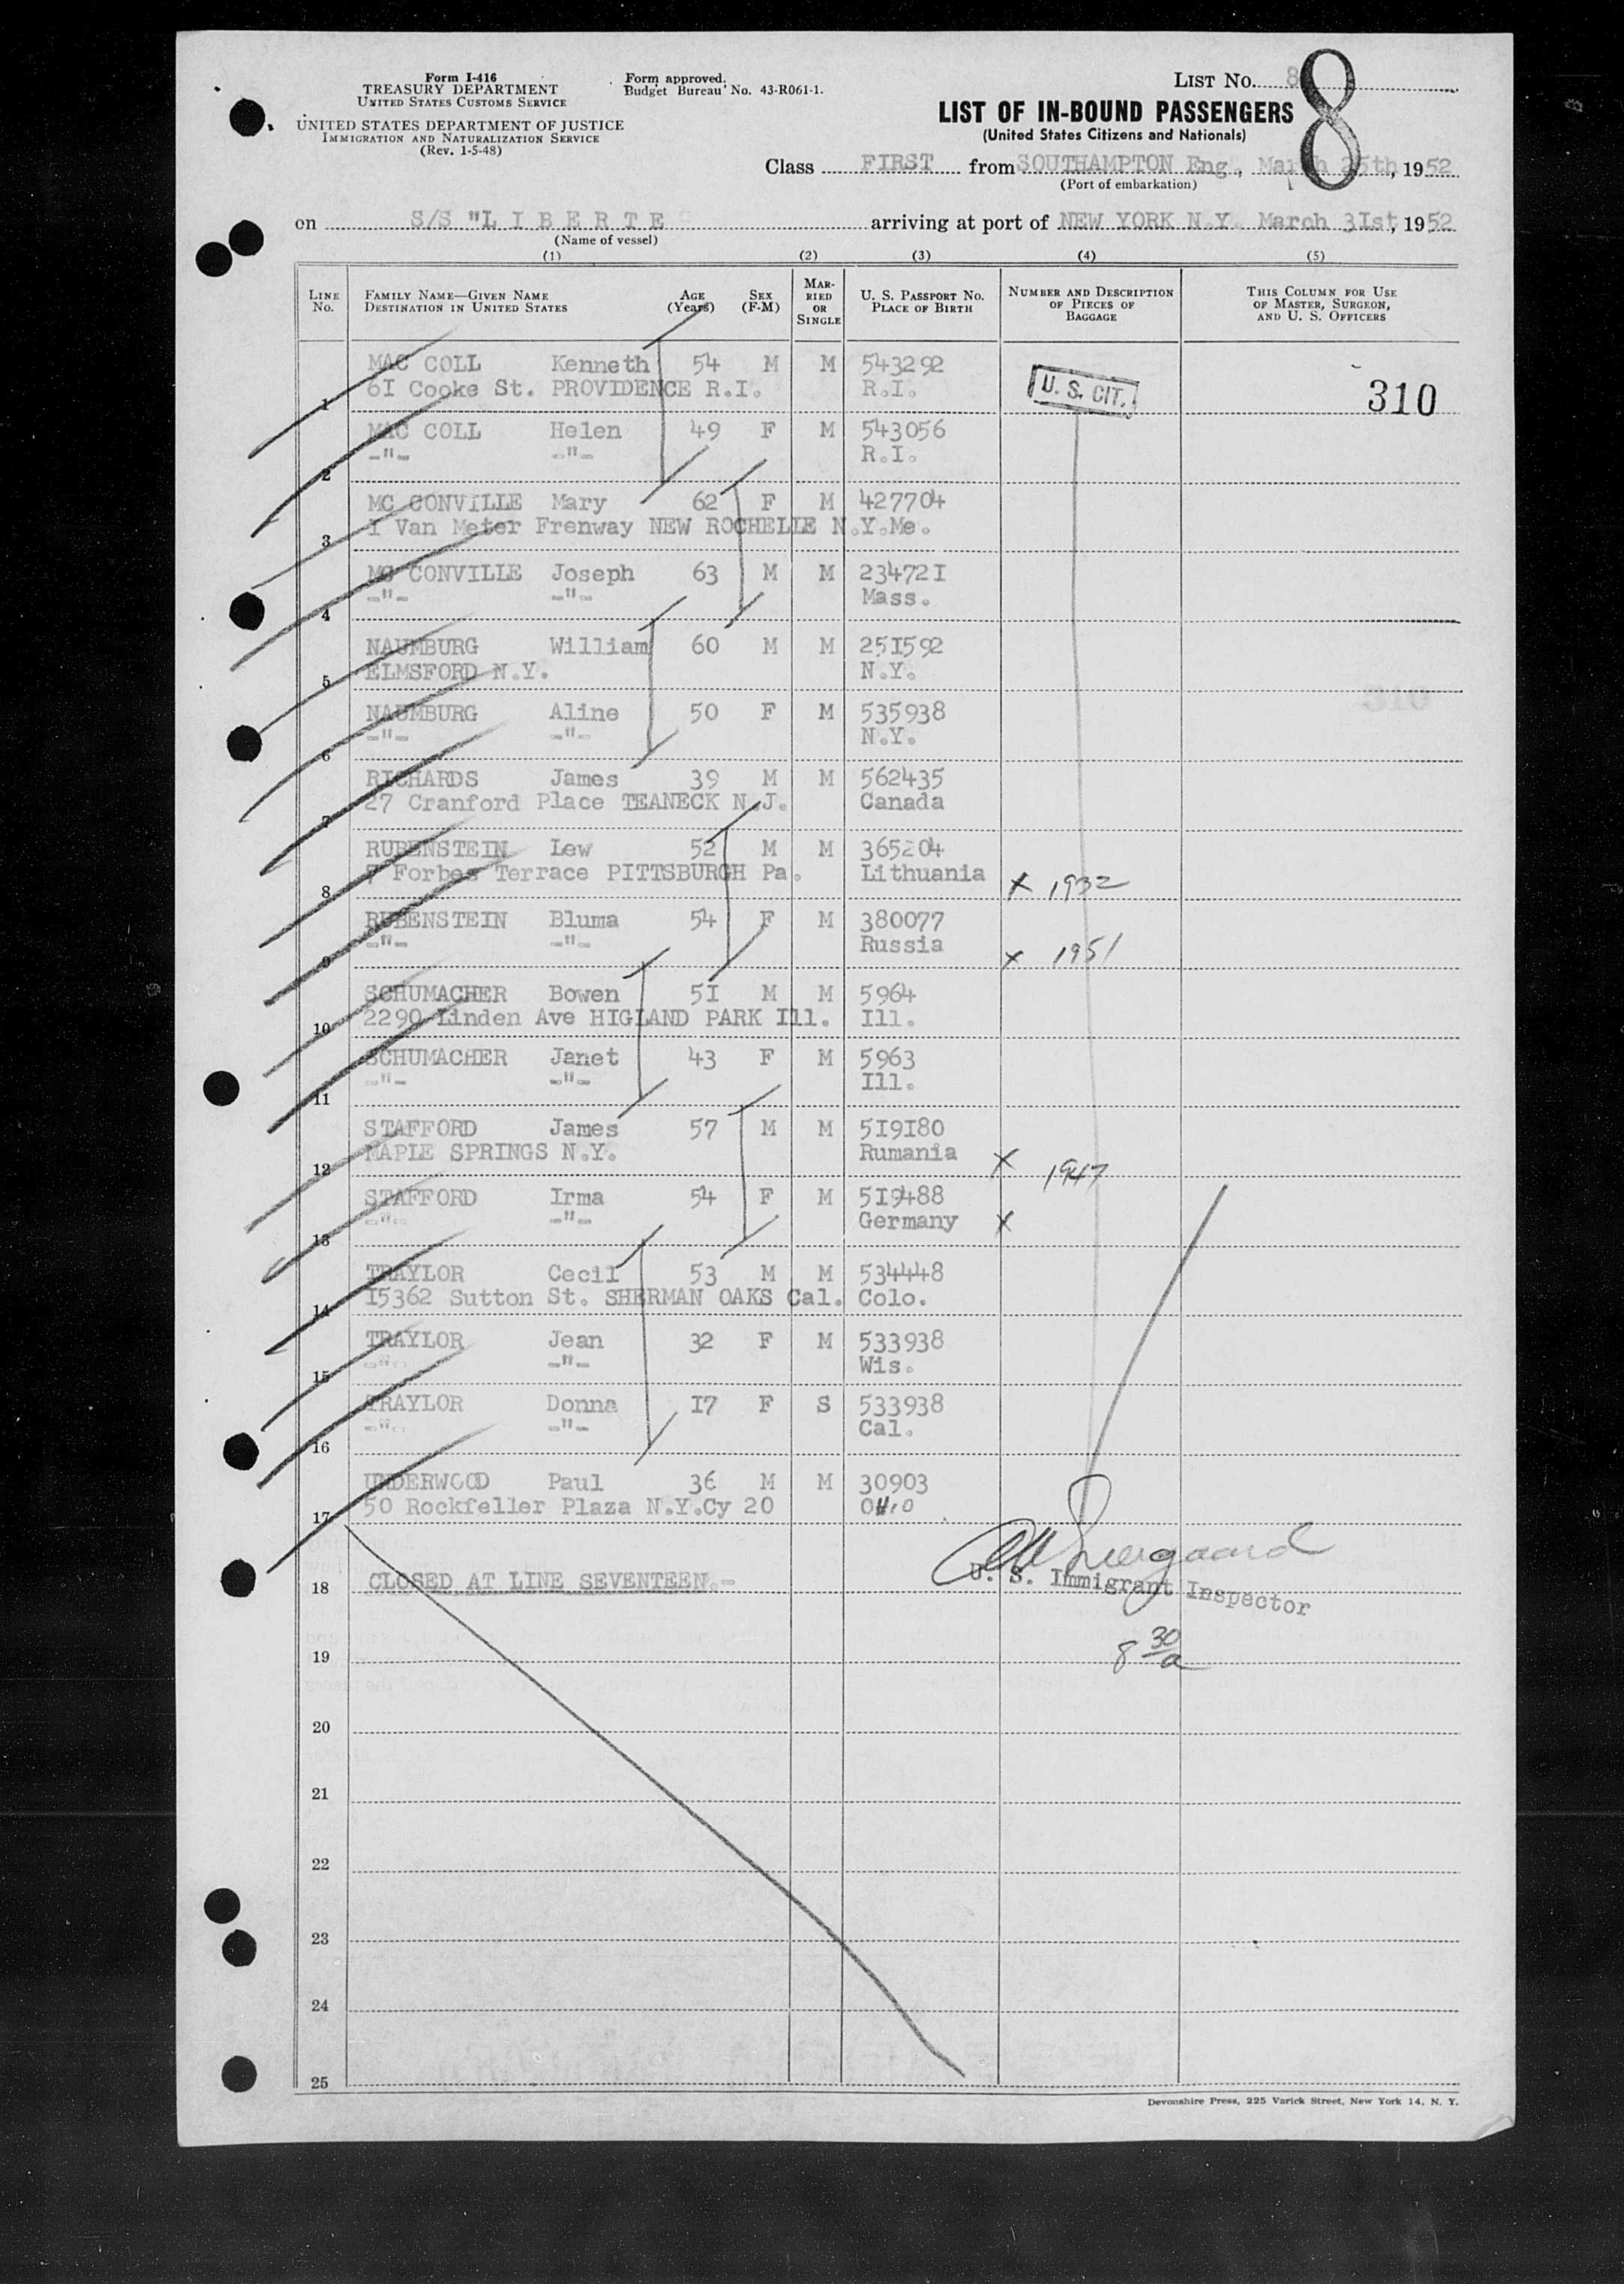 Form I-416
TREASURY DEPARTMENT
UNITED STATES CUSTOMS SERVICE
UNITED STATES DEPARTMENT OF JUSTICE
IMMIGRATION AND NATURALIZATION SERVICE
(Rev. 1-5-48)
Form approved.
Budget Bureau No. 43-R061-1.
LIST No. 8
8
LIST OF IN-BOUND PASSENGERS
(United States Citizens and Nationals)
Class FIRST from SOUTHAMPTON Eng, March 25th, 1952
(Port of embarkation)
on S/S "L I B E R T E arriving at port of NEW YORK N.Y. March 3Ist, 1952
(Name of vessel)
(1) (2) (3) (4) (5)
LINE No. FAMILY NAME—GIVEN NAME DESTINATION IN UNITED STATES AGE (Years) SEX (F-M) MARRIED OR SINGLE U. S. PASSPORT NO. PLACE OF BIRTH NUMBER AND DESCRIPTION OF PIECES OF BAGGAGE THIS COLUMN FOR USE OF MASTER, SURGEON, AND U. S. OFFICERS
MAC COLL Kenneth 54 M M 543292
1 6I Cooke St. PROVIDENCE R.I. R.I. U. S. CIT. 310
MAC COLL Helen 49 F M 543056
2 -"- -"- R.I.
MC CONVILLE Mary 62 F M 427704
3 I Van Meter Frenway NEW ROCHELLE N.Y. Me.
MC CONVILLE Joseph 63 M M 23472I
4 -"- -"- Mass.
NAUMBURG William 60 M M 25I592
5 ELMSFORD N.Y. N.Y.
NAUMBURG Aline 50 F M 535938
6 -"- -"- N.Y.
RICHARDS James 39 M M 562435
7 27 Cranford Place TEANECK N.J. Canada
RUBENSTEIN Lew 52 M M 365204
8 7 Forbes Terrace PITTSBURGH Pa. Lithuania X 1932
RUBENSTEIN Bluma 54 F M 380077
9 -"- -"- Russia X 1951
SCHUMACHER Bowen 5I M M 5964
10 2290 Linden Ave HIGLAND PARK Ill. Ill.
SCHUMACHER Janet 43 F M 5963
11 -"- -"- Ill.
STAFFORD James 57 M M 5I9I80
12 MAPLE SPRINGS N.Y. Rumania X 1947
STAFFORD Irma 54 F M 5I9488
13 -"- -"- Germany X
TRAYLOR Cecil 53 M M 534448
14 I5362 Sutton St. SHERMAN OAKS Cal. Colo.
TRAYLOR Jean 32 F M 533938
15 -"- -"- Wis.
TRAYLOR Donna I7 F S 533938
16 -"- -"- Cal.
UNDERWOOD Paul 36 M M 30903
17 50 Rockfeller Plaza N.Y.Cy 20 OHIO
18 CLOSED AT LINE SEVENTEEN.-
U. S. Immigrant Inspector
19 8 30/a
20
21
22
23
24
25
Devonshire Press, 225 Varick Street, New York 14, N. Y.